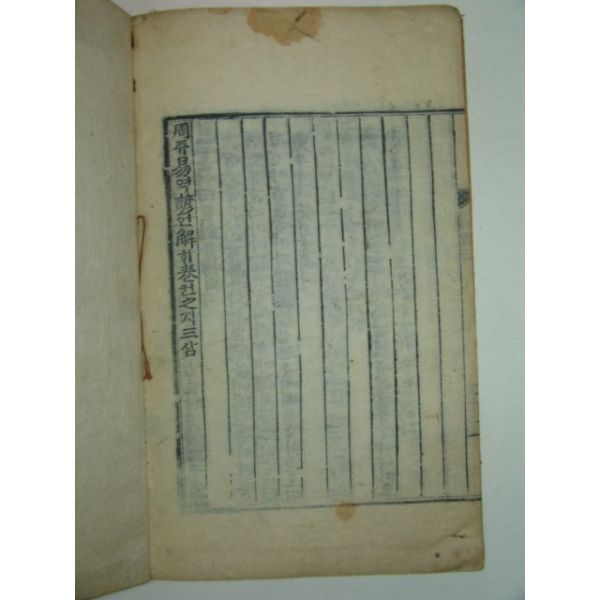 周쥬易역諺언解ᄒᆡ卷권之지三삼